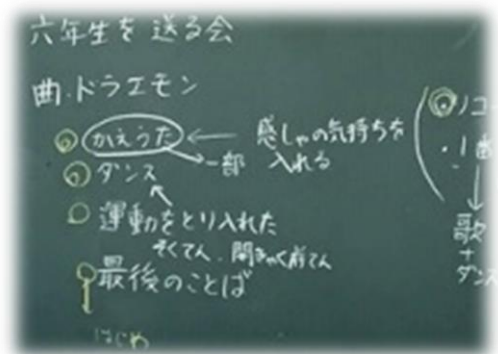 六年生を送る会
曲・ドラエモン
かえうた ← 感しゃの気持ちを
→一部 入れる
ダンス
運動をとり入れた
そくてん、開きゃく前てん
最後のことば
はじめ
リコ
・1番
↓
歌
+
ダンス